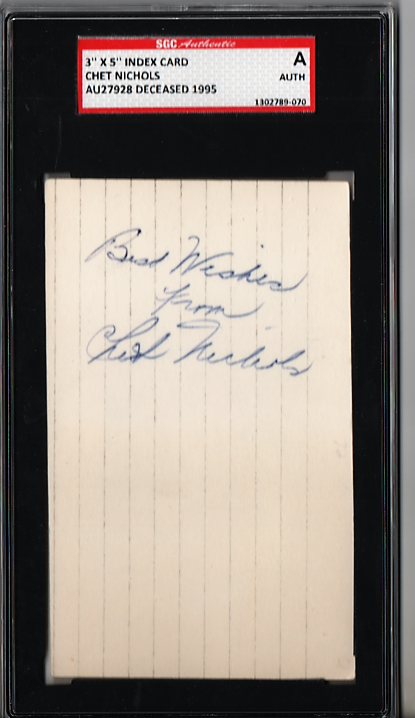 SGC Authentic
3" X 5" INDEX CARD
A
CHET NICHOLS
AUTH
AU27928 DECEASED 1995
1302789-070
Best Wishes
from
Chet Nichols